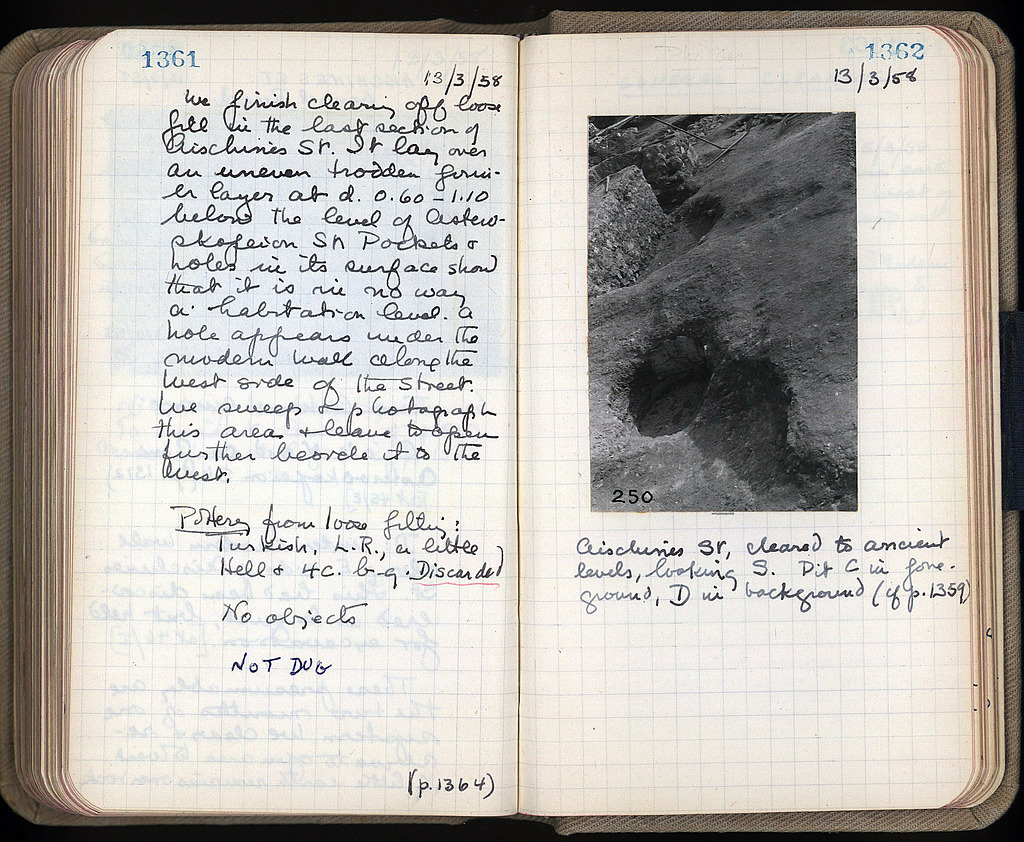 1361
13/3/58
We finish clearing off loose
fill in the last section of
Aischines St. It lay over
an uneven trodden firm-
er layer at d. 0.60 - 1.10
below the level of Astero-
skopeion St. Pockets &
holes in its surface show
that it is in no way
a habitation level. A
hole appears under the
modern wall along the
west side of the Street.
We sweep & photograph
this area & leave to open
further beside it to the
west.
Pottery from loose filling:
Turkish, L.R., a little
Hell & 4C. b-g. Discarded
No objects
NOT DUG
(p. 1364)
1362
13/3/58
250
Aischines St, cleared to ancient
levels, looking S. Pit C in fore-
ground, D in background (cf p. 1359)